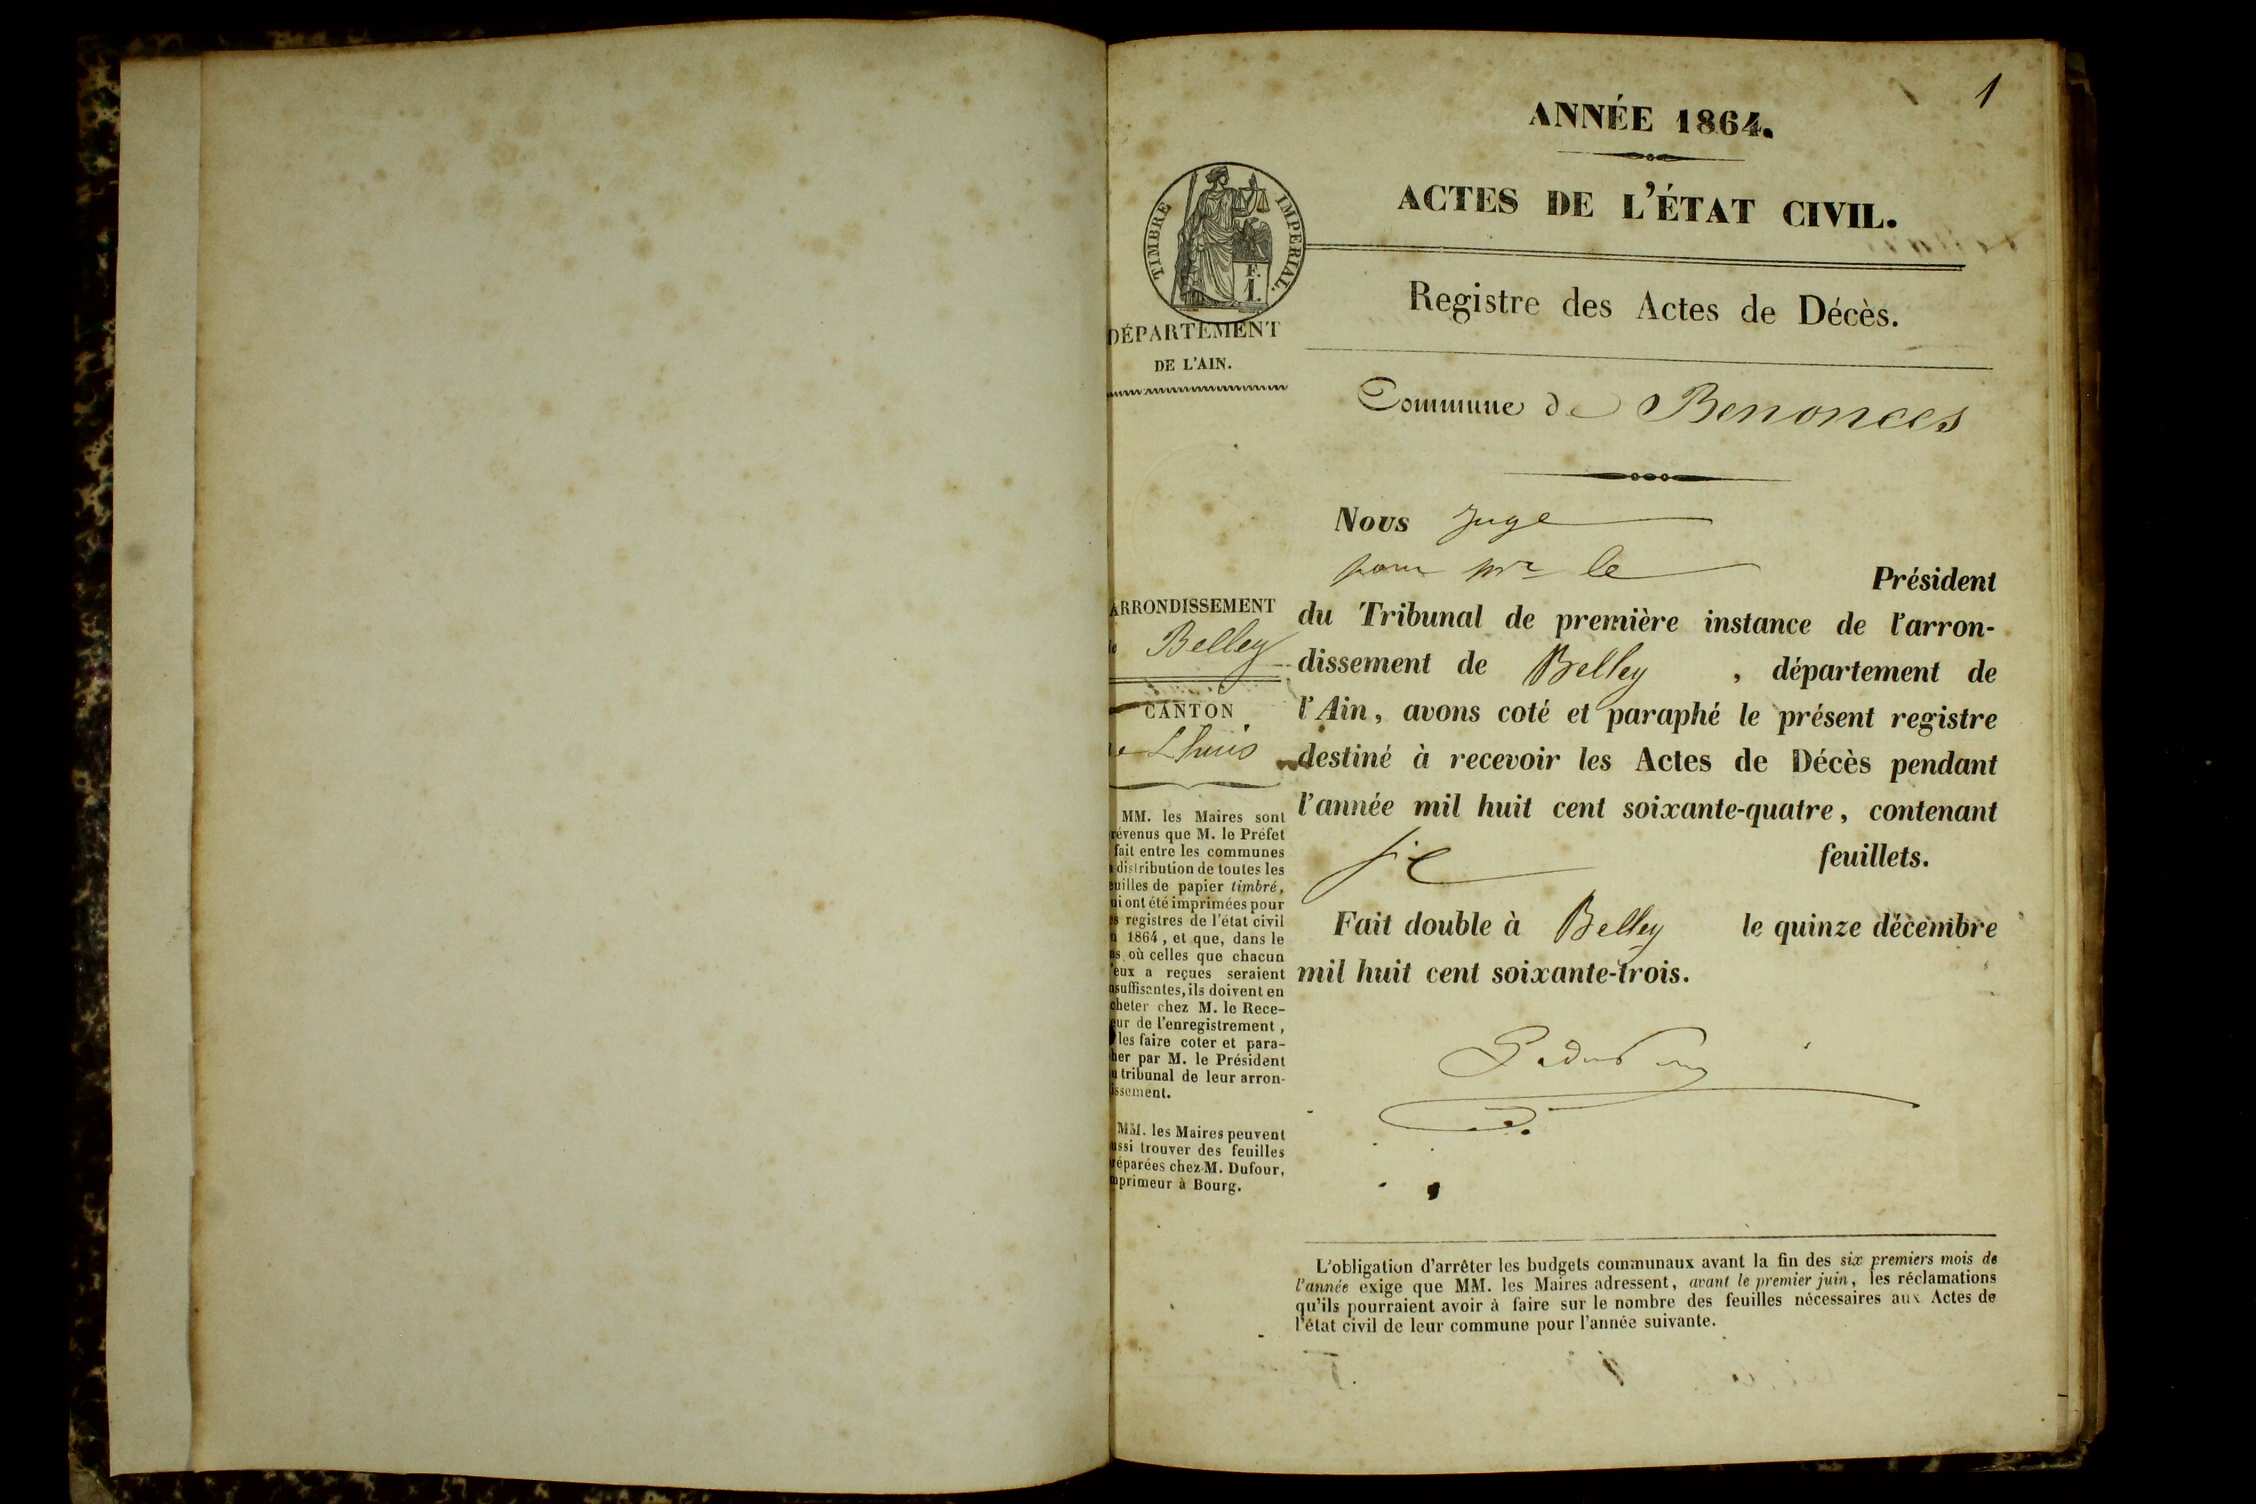 1
ANNÉE 1864.
ACTES DE L'ÉTAT CIVIL.
TIMBRE IMPERIAL.
F.
I.
DÉPARTEMENT
DE L'AIN.
Registre des Actes de Décès.
Commune de Benonces
Nous Juge
pour mr le Président
du Tribunal de première instance de l'arron-
dissement de Belley , département de
l'Ain, avons coté et paraphé le présent registre
destiné à recevoir les Actes de Décès pendant
l'année mil huit cent soixante-quatre, contenant
six feuillets.
Fait double à Belley le quinze décembre
mil huit cent soixante-trois.
ARRONDISSEMENT
de Belley
CANTON
de Lhuis
MM. les Maires sont
révenus que M. le Préfet
fait entre les communes
distribution de toutes les
euilles de papier timbré,
ui ont été imprimées pour
es registres de l'état civil
n 1864, et que, dans le
as où celles que chacun
'eux a reçues seraient
nsuffisantes, ils doivent en
cheter chez M. le Rece-
eur de l'enregistrement,
les faire coter et para-
her par M. le Président
u tribunal de leur arron-
issement.
MM. les Maires peuvent
ussi trouver des feuilles
réparées chez M. Dufour,
mprimeur à Bourg.
L'obligation d'arrêter les budgets communaux avant la fin des six premiers mois de
l'année exige que MM. les Maires adressent, avant le premier juin, les réclamations
qu'ils pourraient avoir à faire sur le nombre des feuilles nécessaires aux Actes de
l'état civil de leur commune pour l'année suivante.